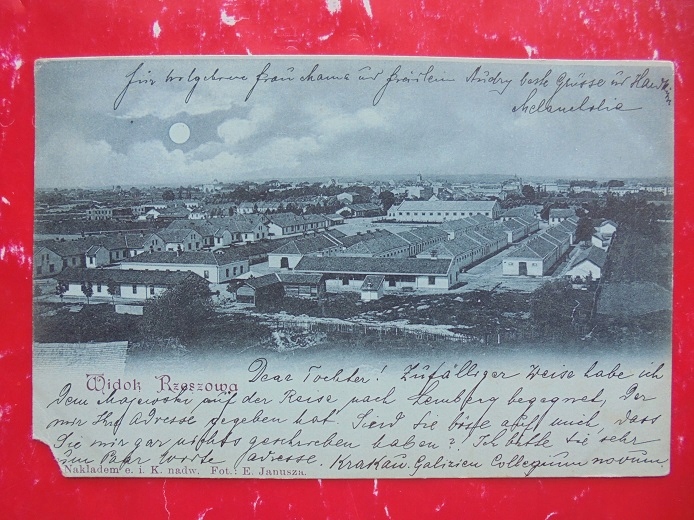 für wolgeborne frau Mama und fräulen Audry beste Grüsse und
Melancholia
Widok Rzeszowa
Dear Tochter! Zufälliger weise habe ich
Dem Majewski auf der Reise nach Lemberg begegnet, Der
mir Ihre Adresse gegeben hat. Sind Sie böse auf mich, dass
Sie mir gar nichts geschrieben haben? Ich bitte Sie sehr
um Paar Worte, Adresse. Krakau. Galizien Collegium novum
Nakładem c. i K. nadw. Fot. E. Janusza.